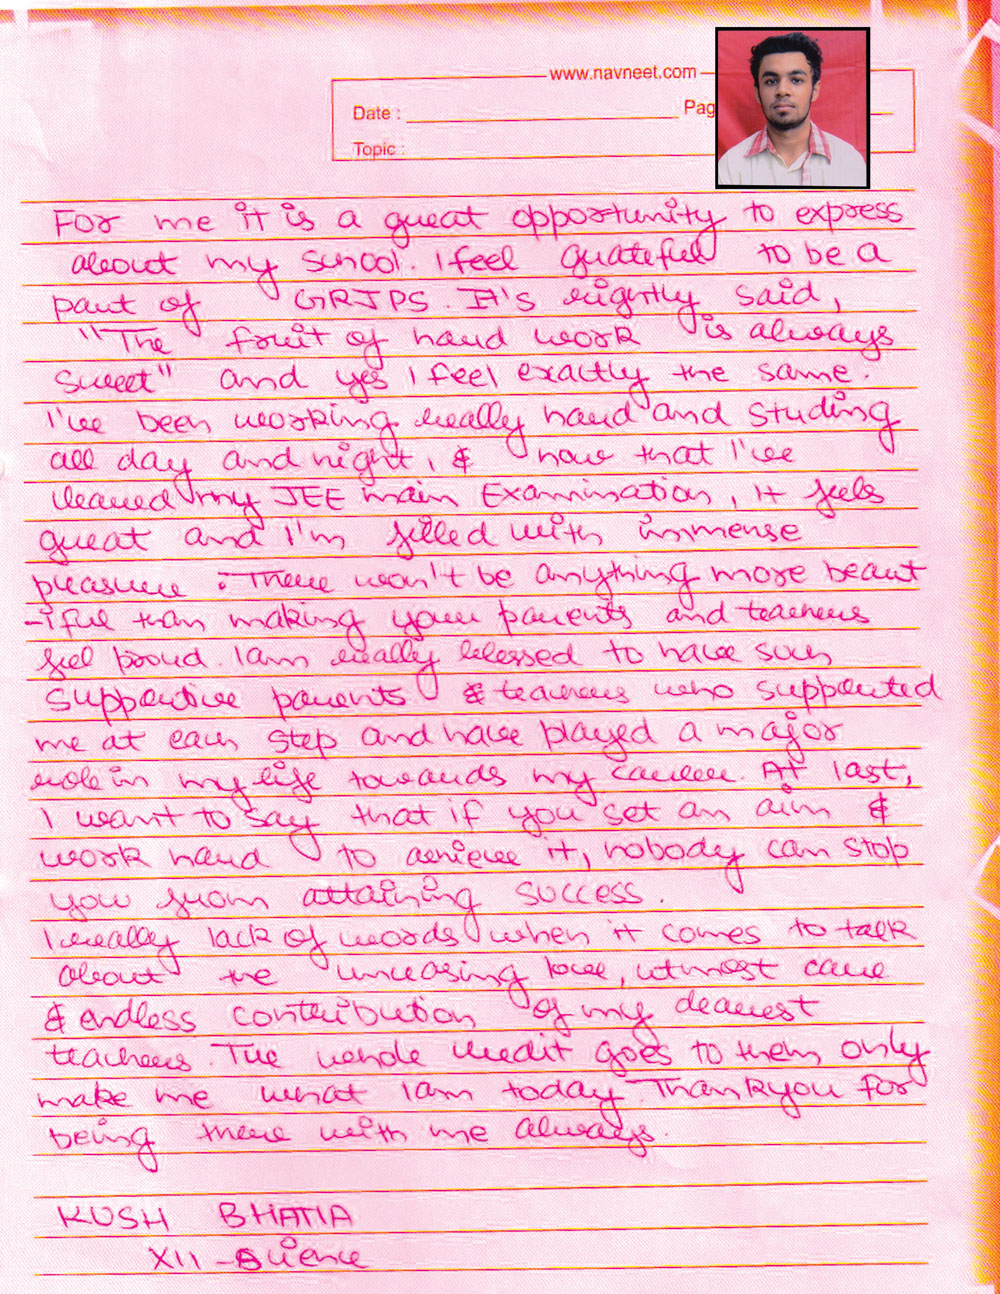 www.navneet.com
Date : Pag
Topic :
For me it is a great opportunity to express
about my school. I feel grateful to be a
part of GRIPS. It's rightly said,
"The fruit of hard work is always
sweet" and yes I feel exactly the same.
I've been working really hard and studing
all day and night, & now that I've
cleared my JEE main Examination, it feels
great and I'm filled with immense
pleasure. There won't be anything more beaut
-iful than making your parents and teachers
feel proud. I am really blessed to have such
supportive parents & teachers who supported
me at each step and have played a major
role in my life towards my career. At last,
I want to say that if you set an aim &
work hard to achieve it, nobody can stop
you from attaining success.
I really lack of words when it comes to talk
about the unceasing love, utmost care
& endless contribution of my dearest
teachers. The whole credit goes to them only
make me what I am today. Thankyou for
being there with me always.
KUSH BHATIA
XII - Science